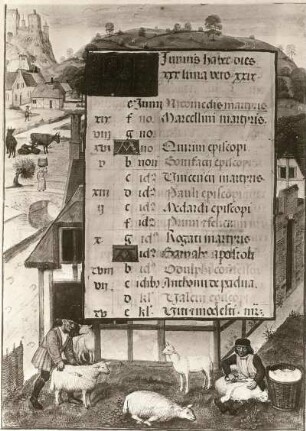 Junius habet dies
xxx luna vero xxix
e Junii Nicomedis martyris
xix f no Marcellini martyris
viii g no
xvi A no Quirini episcopi
v b non Bonifacii episcopi
c idꝰ Vincencii martyris
xiii d idꝰ Pauli episcopi
ii e idꝰ Medardi episcopi
f idꝰ Primi felici
x g idꝰ Rogati martyris
A idꝰ Barnabe apostoli
xviii b idꝰ
vii c idib Anthonii de padua
d kl Valeri episcopi
xv e kl Viti modesti mr